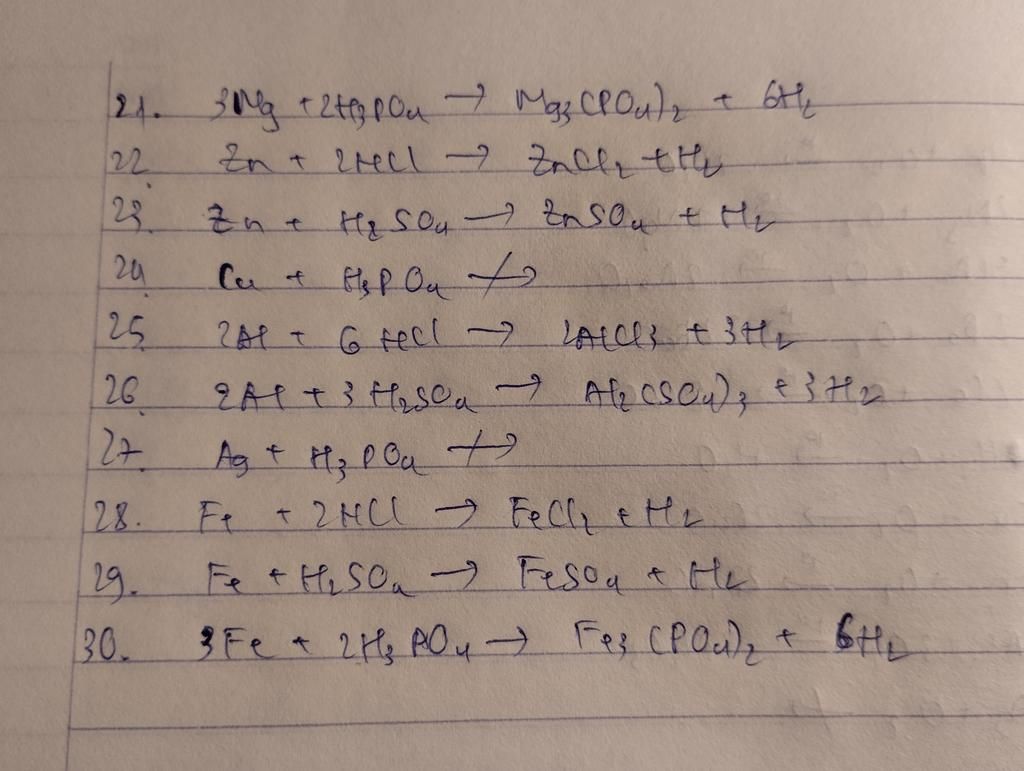 21. 3Mg + 2H₃PO₄ → Mg₃(PO₄)₂ + 6H₂
22. Zn + 2HCl → ZnCl₂ + H₂
23. Zn + H₂SO₄ → ZnSO₄ + H₂
24. Cu + H₃PO₄ ↛
25. 2Al + 6HCl → 2AlCl₃ + 3H₂
26. 2Al + 3H₂SO₄ → Al₂(SO₄)₃ + 3H₂
27. Ag + H₃PO₄ ↛
28. Fe + 2HCl → FeCl₂ + H₂
29. Fe + H₂SO₄ → FeSO₄ + H₂
30. 3Fe + 2H₃PO₄ → Fe₃(PO₄)₂ + 6H₂